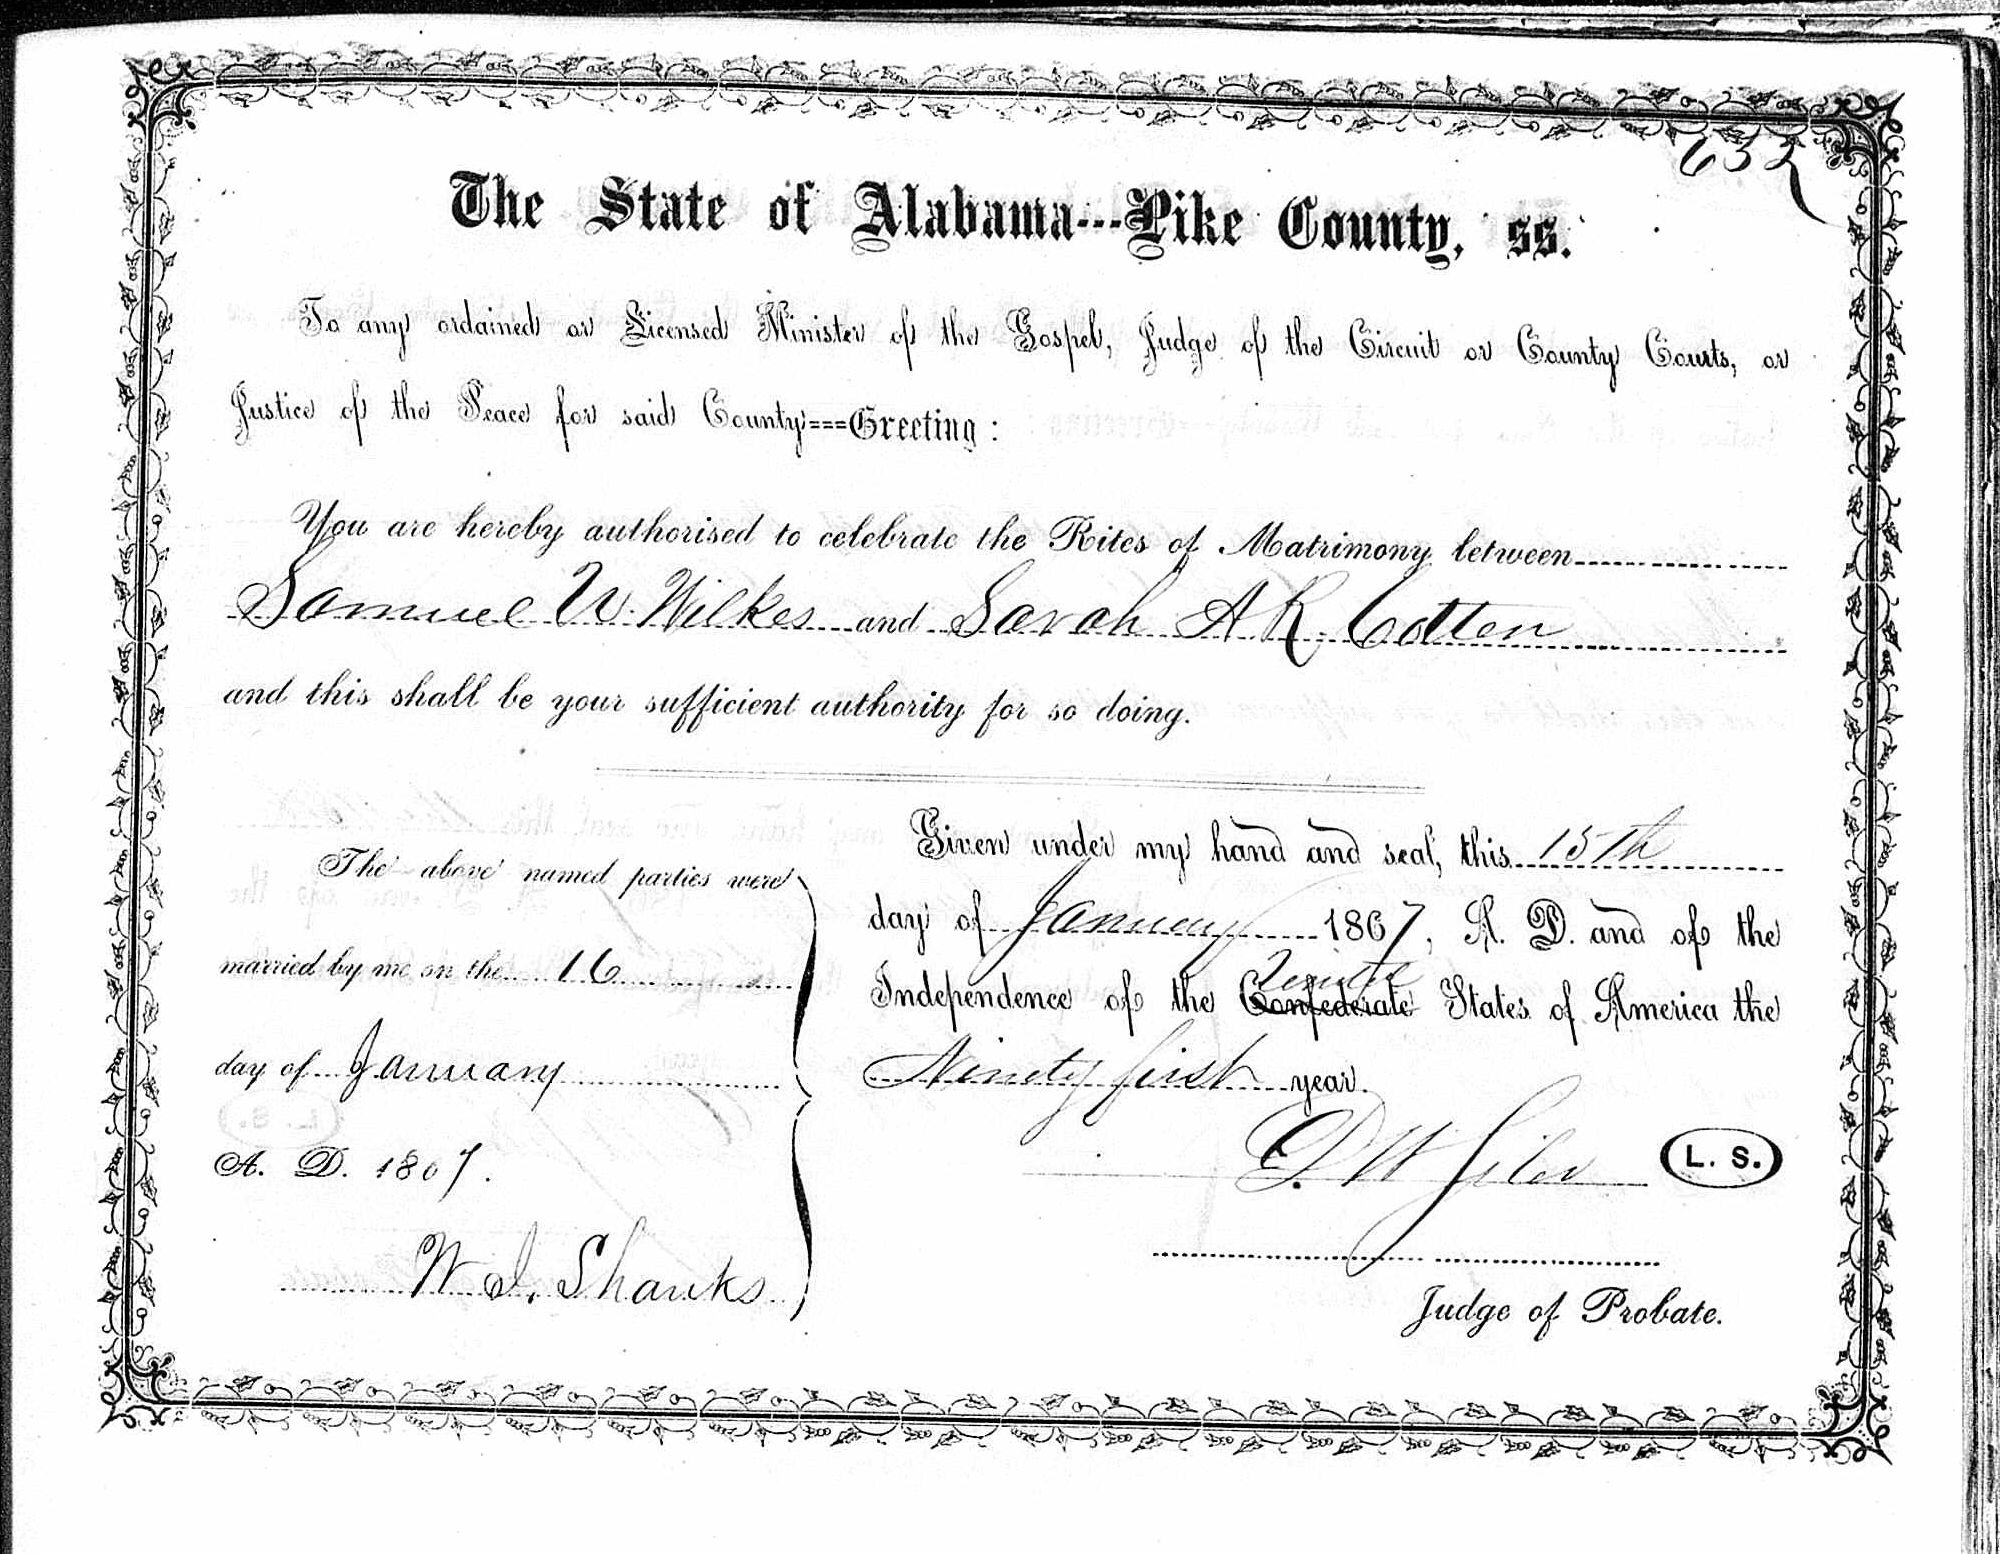 632
The State of Alabama---Pike County, ss.
To any ordained or Licensed Minister of the Gospel, Judge of the Circuit or County Courts, or
Justice of the Peace for said County===Greeting:
You are hereby authorised to celebrate the Rites of Matrimony between
Samuel W. Wilkes and Sarah A R Cotten
and this shall be your sufficient authority for so doing.
Given under my hand and seal, this 15th
day of January 1867, A. D. and of the
United
Independence of the Confederate States of America the
Ninety first year.
L. S.
Judge of Probate.
The above named parties were
married by me on the 16
day of January
A. D. 1867.
W J. Shanks